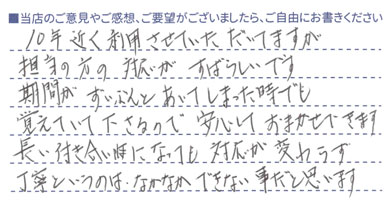 ■当店のご意見やご感想、ご要望がございましたら、ご自由にお書きください
10年近く利用させていただいてますが
担当の方の対応がすばらしいです
期間がずいぶんとあいてしまった時でも
覚えていて下さるので安心しておまかせできます
長い付き合い時になっても対応が変わらず
丁寧というのは、なかなかできない事だと思います